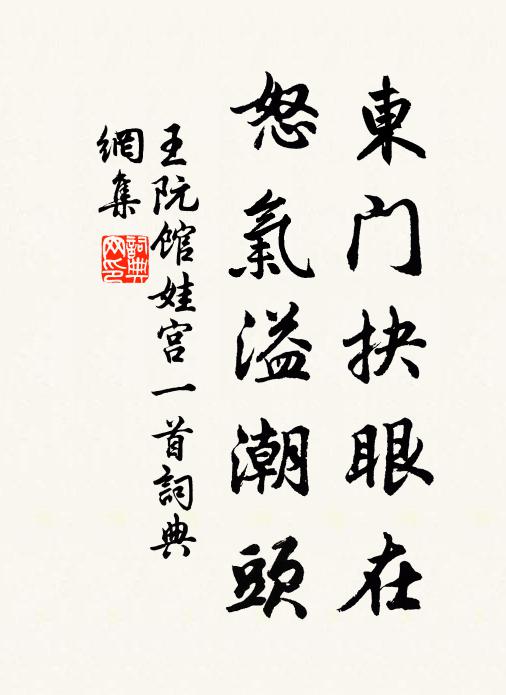 東門抉眼在
怒氣溢潮頭
王阮館娃宮一首詞典
網集
詞典
网印